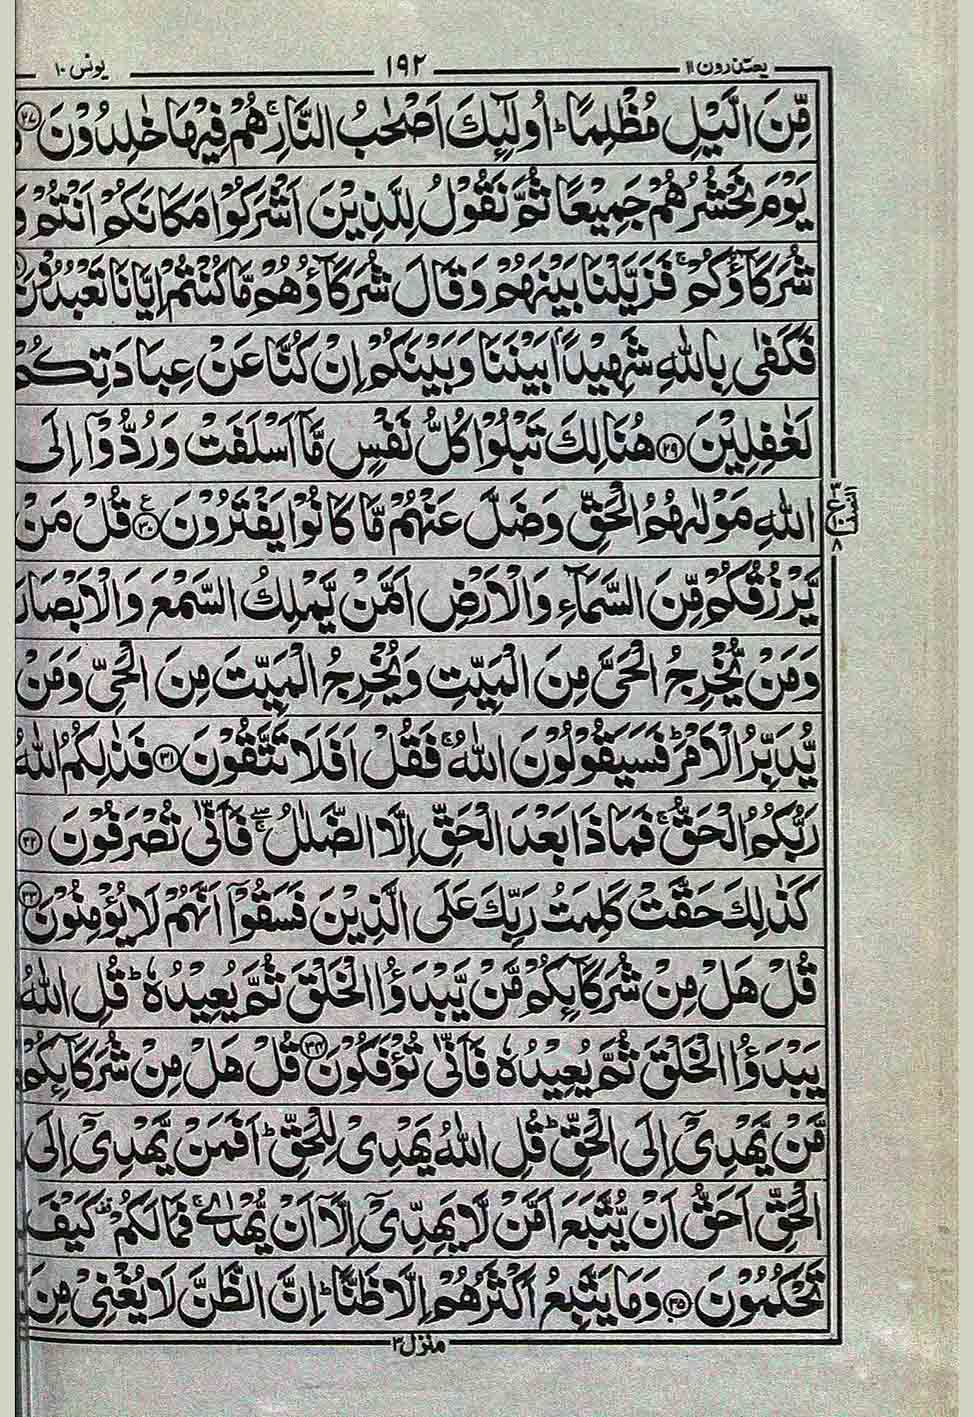 یعتذرون ۱۱ ۱۹۲ یونس ۱۰
مِّنَ الَّيْلِ مُظْلِمًا ؕ اُولٰٓئِكَ اَصْحٰبُ النَّارِ ۚ هُمْ فِيْهَا خٰلِدُوْنَ ﴿۲۷﴾
يَوْمَ نَحْشُرُهُمْ جَمِيْعًا ثُمَّ نَقُوْلُ لِلَّذِيْنَ اَشْرَكُوْا مَكَانَكُمْ اَنْتُمْ
شُرَكَآؤُكُمْ ۚ فَزَيَّلْنَا بَيْنَهُمْ وَقَالَ شُرَكَآؤُهُمْ مَّا كُنْتُمْ اِيَّانَا تَعْبُدُوْنَ
فَكَفٰى بِاللّٰهِ شَهِيْدًۢا بَيْنَنَا وَبَيْنَكُمْ اِنْ كُنَّا عَنْ عِبَادَتِكُمْ
لَغٰفِلِيْنَ ﴿۲۹﴾ هُنَالِكَ تَبْلُوْا كُلُّ نَفْسٍ مَّآ اَسْلَفَتْ وَرُدُّوْٓا اِلَى
اللّٰهِ مَوْلٰىهُمُ الْحَقِّ وَضَلَّ عَنْهُمْ مَّا كَانُوْا يَفْتَرُوْنَ ﴿۳۰﴾ ع قُلْ مَنْ
يَّرْزُقُكُمْ مِّنَ السَّمَآءِ وَالْاَرْضِ اَمَّنْ يَّمْلِكُ السَّمْعَ وَالْاَبْصَارَ
وَمَنْ يُّخْرِجُ الْحَيَّ مِنَ الْمَيِّتِ وَيُخْرِجُ الْمَيِّتَ مِنَ الْحَيِّ وَمَنْ
يُّدَبِّرُ الْاَمْرَ ؕ فَسَيَقُوْلُوْنَ اللّٰهُ ۚ فَقُلْ اَفَلَا تَتَّقُوْنَ ﴿۳۱﴾ فَذٰلِكُمُ اللّٰهُ
رَبُّكُمُ الْحَقُّ ۚ فَمَاذَا بَعْدَ الْحَقِّ اِلَّا الضَّلٰلُ ۖۚ فَاَنّٰى تُصْرَفُوْنَ ﴿۳۲﴾
كَذٰلِكَ حَقَّتْ كَلِمَتُ رَبِّكَ عَلَى الَّذِيْنَ فَسَقُوْٓا اَنَّهُمْ لَا يُؤْمِنُوْنَ ﴿۳۳﴾
قُلْ هَلْ مِنْ شُرَكَآئِكُمْ مَّنْ يَّبْدَؤُا الْخَلْقَ ثُمَّ يُعِيْدُهٗ ؕ قُلِ اللّٰهُ
يَبْدَؤُا الْخَلْقَ ثُمَّ يُعِيْدُهٗ فَاَنّٰى تُؤْفَكُوْنَ ﴿۳۴﴾ قُلْ هَلْ مِنْ شُرَكَآئِكُمْ
مَّنْ يَّهْدِيْٓ اِلَى الْحَقِّ ؕ قُلِ اللّٰهُ يَهْدِيْ لِلْحَقِّ ؕ اَفَمَنْ يَّهْدِيْٓ اِلَى
الْحَقِّ اَحَقُّ اَنْ يُّتَّبَعَ اَمَّنْ لَّا يَهِدِّيْٓ اِلَّآ اَنْ يُّهْدٰى ۚ فَمَا لَكُمْ ۟ كَيْفَ
تَحْكُمُوْنَ ﴿۳۵﴾ وَمَا يَتَّبِعُ اَكْثَرُهُمْ اِلَّا ظَنًّا ؕ اِنَّ الظَّنَّ لَا يُغْنِيْ مِنَ
منزل ۳